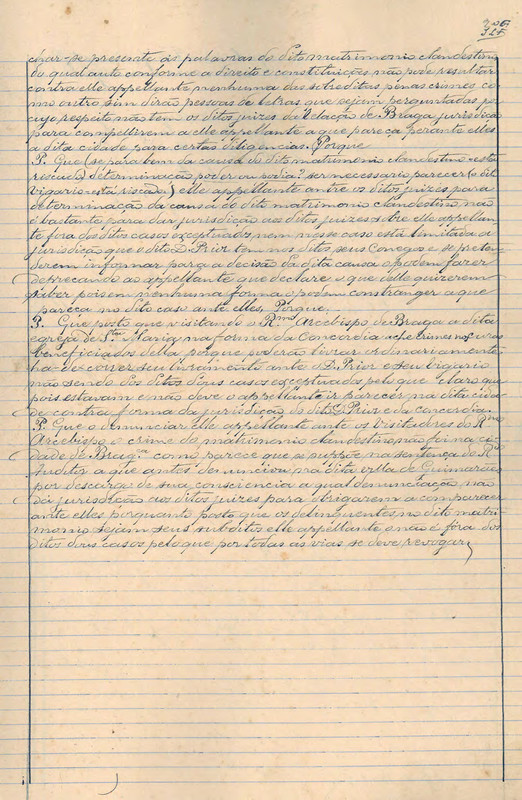 char-se presente ás palavras do dito matrimonio clandestino
do qual auto conforme a direito e constituições não pode resultar
contra elle appellante nenhuma das sobreditas penas crimes, co
mo outro sim dirão pessoas de letras que sejam perguntadas, po
cujo respeito não tem os ditos juizes da Relação de Braga jurisdica
para compellirem a elle appellante a que pareça perante elles
a dita cidade para certas diligencias. Porque
P. Que (se para bem da causa do dito matrimonio clandestino = está
riscado) determinação poder ou podia? ser necessario parecer (o dit
vigario = está riscado.) elle appellante antre os ditos juizes para
determinação da causa do dito matrimonio clandestino não
é bastante para dar jurisdição aos ditos juizes sobre elle appellan
te fora dos ditos casos exceptuados nem nisso caso está limitada a
jurisdição que o dito D. Prior tem nos ditos seus Conegos e se preten
derem informar para a decisão da dita causa o podem fazer
deprecando ao appellante que declare o que elle quizerem
saber pois em nenhuma forma o podem constranger a que
pareça no dito caso ante elles. Porque.
P. Que posto que visitando o R.mo Arcebispo de Braga a dita
egreja de S.ta Maria na forma da Concordia
beneficiados della porque poderão livrar ordinariamente
ha de correr seu livramento ante o D. Prior e seu vigario
não sendo dos ditos dous casos exceptuados pelo que claro que
pois estavam e não deve o appellante ir parecer na dita cida
de contra forma da jurisdição do dito D. Prior e da concordia.
P. Que o denunciar elle appellante ante os Visitadores do R.mo
Arcebispo o crime do matrimonio clandestino não foi na ci
dade de Braga como parece que se suppoe na sentença do R.mo
Auditor a que antes denunciou na dita villa de Guimarães
por descarga de sua consciencia a qual denunciação não
dá jurisdição aos ditos juizes para obrigarem a comparecer
ante elles porquanto posto que os delinquentes no dito matri
monio sejam seus subditos elle appellante o não é fora dos
ditos dous casos pelo que por todas as vias se deve revogar